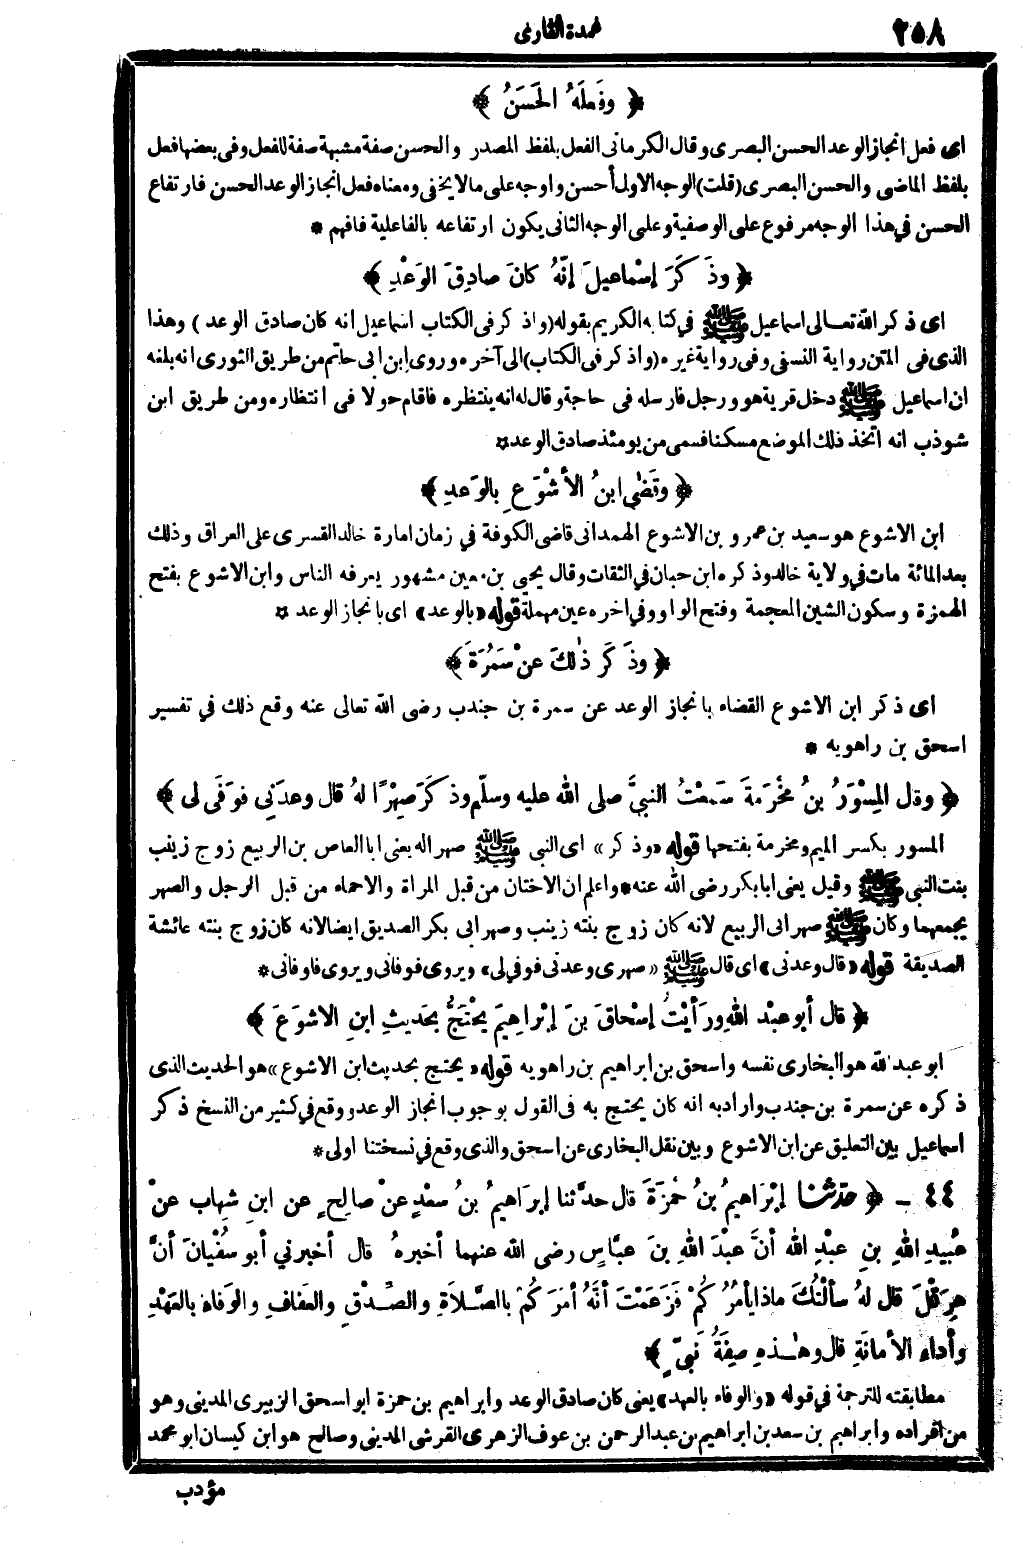 ٢٥٨
عمدة القارى
﴿ وفَعلَهُ الحَسَنُ ﴾
اى فعل انجاز الوعد الحسن البصرى وقال الكرمانى الفعل بلفظ المصدر والحسن صفة مشبهة صفة للفعل وفى بعضها فعل
بلفظ الماضى والحسن البصرى (قلت) الوجه الاول أحسن واوجه على ما لا يخفى ومعناه فعل انجاز الوعد الحسن فارتفاع
الحسن في هذا الوجه مرفوع على الوصفية وعلى الوجه الثانى يكون ارتفاعه بالفاعلية فافهم *
﴿ وذَكَرَ إسْماعيلَ إنَّهُ كانَ صادِقَ الوَعْدِ ﴾
اى ذكر الله تعالى اسماعيل ﷺ في كتابه الكريم بقوله (واذكر فى الكتاب اسماعيل انه كان صادق الوعد) وهذا
الذى فى المتن رواية النسفى وفى رواية غيره (واذكر فى الكتاب) الى آخره وروى ابن ابى حاتم من طريق الثورى انه بلغه
ان اسماعيل ﷺ دخل قرية هو ورجل فارسله فى حاجة وقال له انه ينتظره فاقام حولا فى انتظاره ومن طريق ابن
شوذب انه اتخذ ذلك الموضع مسكنا فسمى من يومئذ صادق الوعد*
﴿ وقَضَى ابنُ الأَشْوَعِ بالوَعدِ ﴾
ابن الاشوع هو سعيد بن عمرو بن الاشوع الهمدانى قاضى الكوفة في زمان امارة خالد القسرى على العراق وذلك
بعد المائة مات في ولاية خالد وذكره ابن حبان في الثقات وقال يحيى بن معين مشهور يعرفه الناس وابن الاشوع بفتح
الهمزة وسكون الشين المعجمة وفتح الواو وفى اخره عين مهملة قوله «بالوعد» اى بانجاز الوعد *
﴿ وذَكَرَ ذٰلكَ عنْ سَمُرَةَ ﴾
اى ذكر ابن الاشوع القضاء بانجاز الوعد عن سمرة بن جندب رضى الله تعالى عنه وقع ذلك في تفسير
اسحق بن راهويه *
﴿ وقال المِسْوَرُ بنُ مَخْرَمَةَ سَمِعْتُ النبيَّ صلى الله عليه وسلّم وذَكَرَ صِهْرًا لهُ قال وعدَنِي فوَفَى لى ﴾
المسور بكسر الميم ومخرمة بفتحها قوله «وذكر» اى النبى ﷺ صهرا له يعنى ابا العاص بن الربيع زوج زينب
بنت النبى ﷺ وقيل يعنى ابا بكر رضى الله عنه* واعلم ان الاختان من قبل المراة والاحماء من قبل الرجل والصهر
يجمعهما وكان ﷺ صهر ابى الربيع لانه كان زوج بنته زينب وصهر ابى بكر الصديق ايضا لانه كان زوج بنته عائشة
الصديقة قوله «قال وعدنى» اى قال ﷺ «صهرى وعدنى فوفى لى» ويروى فوفانى ويروى فاوفانى*
﴿ قال أبو عبْد الله ورَأيْتُ إسْحاقَ بنَ إبْراهِيمَ يَحْتَجُّ بحَديثِ ابنِ الاشوَعَ ﴾
ابو عبد الله هو البخارى نفسه واسحق بن ابراهيم بن راهويه قوله «يحتج بحديث ابن الاشوع» هو الحديث الذى
ذكره عن سمرة بن جندب واراد به انه كان يحتج به فى القول بوجوب انجاز الوعد ووقع في كثير من النسخ ذكر
اسماعيل بين التعليق عن ابن الاشوع وبين نقل البخارى عن اسحق والذى وقع في نسختنا اولى*
٤٤ - ﴿ حدثنا إبْرَاهيمُ بنُ حَمْزَةَ قال حدَّثنا إبرَاهيمُ بنُ سعْدٍ عنْ صالحٍ عن ابنِ شِهاب عنْ
عُبيدِ اللهِ بنِ عبْدِ الله أنَّ عبْدَ اللهِ بنَ عبَّاسٍ رضى الله عنهما أخبرهُ قال أخبرني أبو سُفْيانَ أنَّ
هِرَقْلَ قال لهُ سألْتُكَ ماذا يأمُرُكُمْ فزَعَمْتَ أنَّهُ أمَرَكُمْ بالصَّلاَةِ والصِّدْقِ والعفافِ والوَفاءِ بالعَهْدِ
وأداءِ الأمانَةِ قال وهٰذهِ صِفَةُ نَبىٍّ ﴾
مطابقته للترجمة في قوله «والوفاء بالعهد» يعنى كان صادق الوعد وابراهيم بن حمزة ابو اسحق الزبيرى المدينى وهو
من افراده وابراهيم بن سعد بن ابراهيم بن عبد الرحمن بن عوف الزهرى القرشى المدينى وصالح هو ابن كيسان ابو محمد
مؤدب